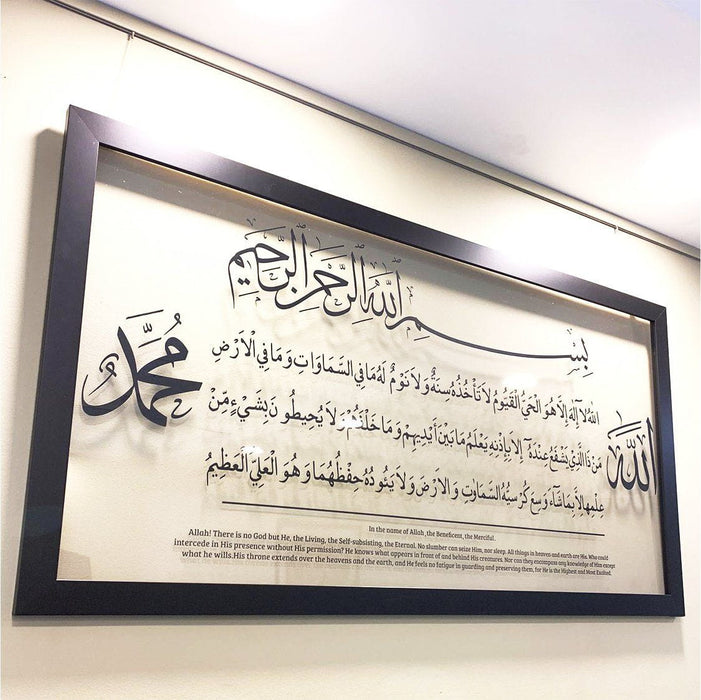 بِسْمِ اللهِ الرَّحْمٰنِ الرَّحِيمِ
اَللهُ لَا آاِلٰهَ اِلَّا هُوَ الْحَيُّ الْقَيُّومُ لَا تَأْخُذُهُ سِنَةٌ وَلَا نَوْمٌ لَهُ مَا فِي السَّمَاوَاتِ وَمَا فِي الْاَرْضِ
مَنْ ذَا الَّذِي يَشْفَعُ عِنْدَهُٓ اِلَّا بِاِذْنِهِ يَعْلَمُ مَا بَيْنَ اَيْدِيهِمْ وَمَا خَلْفَهُمْ وَلَا يُحِيطُونَ بِشَيْءٍ مِّنْ
عِلْمِهِ اِلَّا بِمَا شَٓاءَ وَسِعَ كُرْسِيُّهُ السَّمٰوَاتِ وَالْاَرْضَ وَلَا يَئُودُهُ حِفْظُهُمَا وَهُوَ الْعَلِيُّ الْعَظِيمُ
الله
محمد
In the name of Allah ,the Beneficent, the Merciful.
Allah! There is no God but He, the Living, the Self-subsisting, the Eternal. No slumber can seize Him, nor sleep. All things in heavens and earth are His. Who could
intercede in His presence without His permission? He knows what appears in front of and behind His creatures. Nor can they encompass any knowledge of Him except
what he wills.His throne extends over the heavens and the earth, and He feels no fatigue in guarding and preserving them, for He is the Highest and Most Exalted.